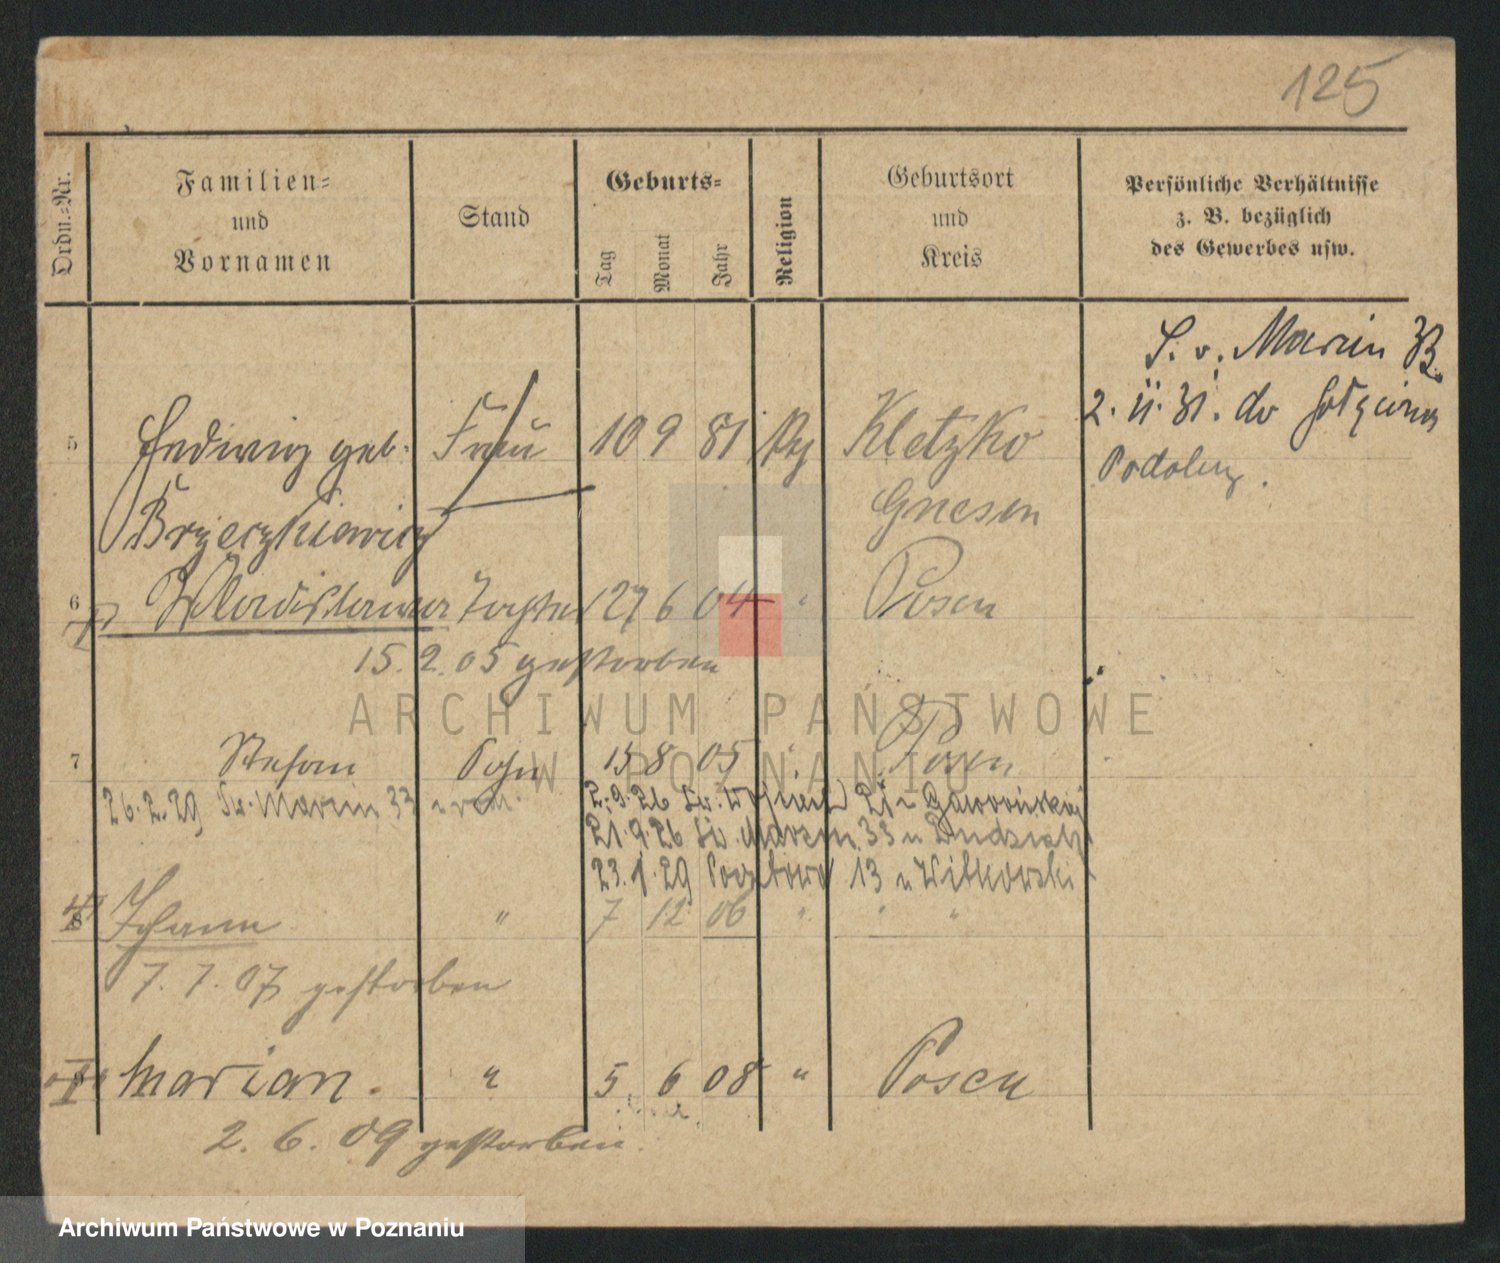 125
Ordn.-Nr.
Familien-
und
Vornamen
Stand
Geburts-
Tag
Monat
Jahr
Religion
Geburtsort
und
Kreis
Persönliche Verhältnisse
z. B. bezüglich
des Gewerbes usw.
S. v. Marcin 33
2. 11. 31. do Golęcina
Podolny.
5 Hedwig geb. Frau 10 9 81 Kletzko
Gnesen
6 Wladislawa Tochter 27 6 04 " Posen
15. 2. 05 gestorben
7 Stefan Sohn 15 8 05 " Posen
26. 2. 29 Sw. Marcin 33
2. 9. 26 Św. Wojciech 21 u Gaworońskiej
21. 9. 26 Św. Marcin 33 u
23. 1. 29 Pocztowa 13 u Witkowski
8 Johann " 7 12 06 " " "
7. 7. 07 gestorben
Marian. " 5 6 08 " Posen
2. 6. 09 gestorben.
ARCHIWUM PAŃSTWOWE
W POZNANIU
Archiwum Państwowe w Poznaniu